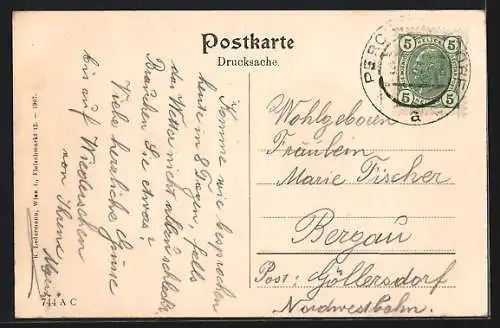 Postkarte
Drucksache.
5 5
5 5
PERC
a
Komme wie besprochen
heute in 8 Tagen, falls
das Wetter nicht allzu schlecht
Brauchen Sie etwas?
Viele herzliche Grüße
bis auf Wiedersehen
von Ihrem
Wohlgeboren
Fräulein
Marie Fischer
Bergau
Post: Göllersdorf
Nordwestbahn.
K. Ledermann, Wien I., Fleischmarkt 12. — 1907.
744 A C